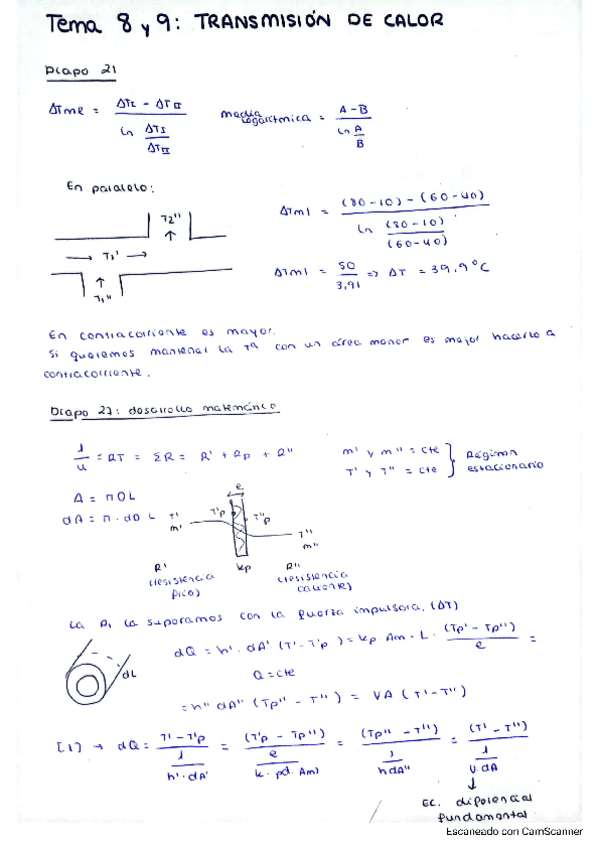 Tema 8 y 9: TRANSMISIÓN DE CALOR
Diapo 21
ΔTme = (ΔTI - ΔTII) / (ln ΔTI/ΔTII)
media logarítmica = (A-B) / (ln A/B)
En paralelo:
T2''
→ T1' →
T1''
ΔTml = ((80-10) - (60-40)) / (ln (80-10)/(60-40))
ΔTml = 50/3,91 => ΔT = 39.9ºC
En contracorriente es mayor.
Si queremos mantener la Tª con un área menor es mejor hacerlo a
contracorriente.
Diapo 27: desarrollo matemático
1/u = RT = ΣR = R' + Rp + R''
m' y m'' = cte
T' y T'' = cte
} Régimen estacionario
A = πDL
dA = π·dD L
e
T' T'p T''p T''
m' m''
R' kp R''
(resistencia (resistencia
frío) caliente)
La R, la superamos con la fuerza impulsora, (ΔT)
dL
dQ = h'·dA' (T'-T'p) = kp Am·L·(Tp'-Tp'')/e =
Q = cte
= h'' dA'' (Tp'' - T'') = VA (T'-T'')
[1] → dQ = (T'-T'p)/(1/(h'·dA')) = (T'p - Tp'')/(e/(k·pd·Am)) = (Tp'' - T'')/(1/(hdA'')) = (T' - T'')/(1/(U·dA))
↓
EC. diferencial
fundamental
Escaneado con CamScanner